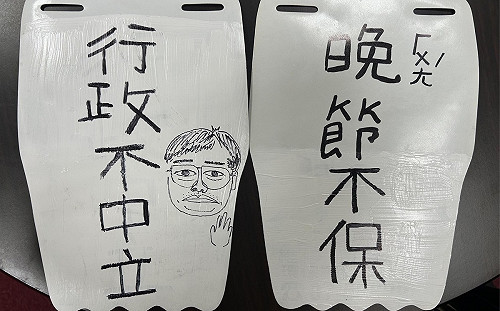 行政不中立
晚節不保
ㄏㄨㄤˊ